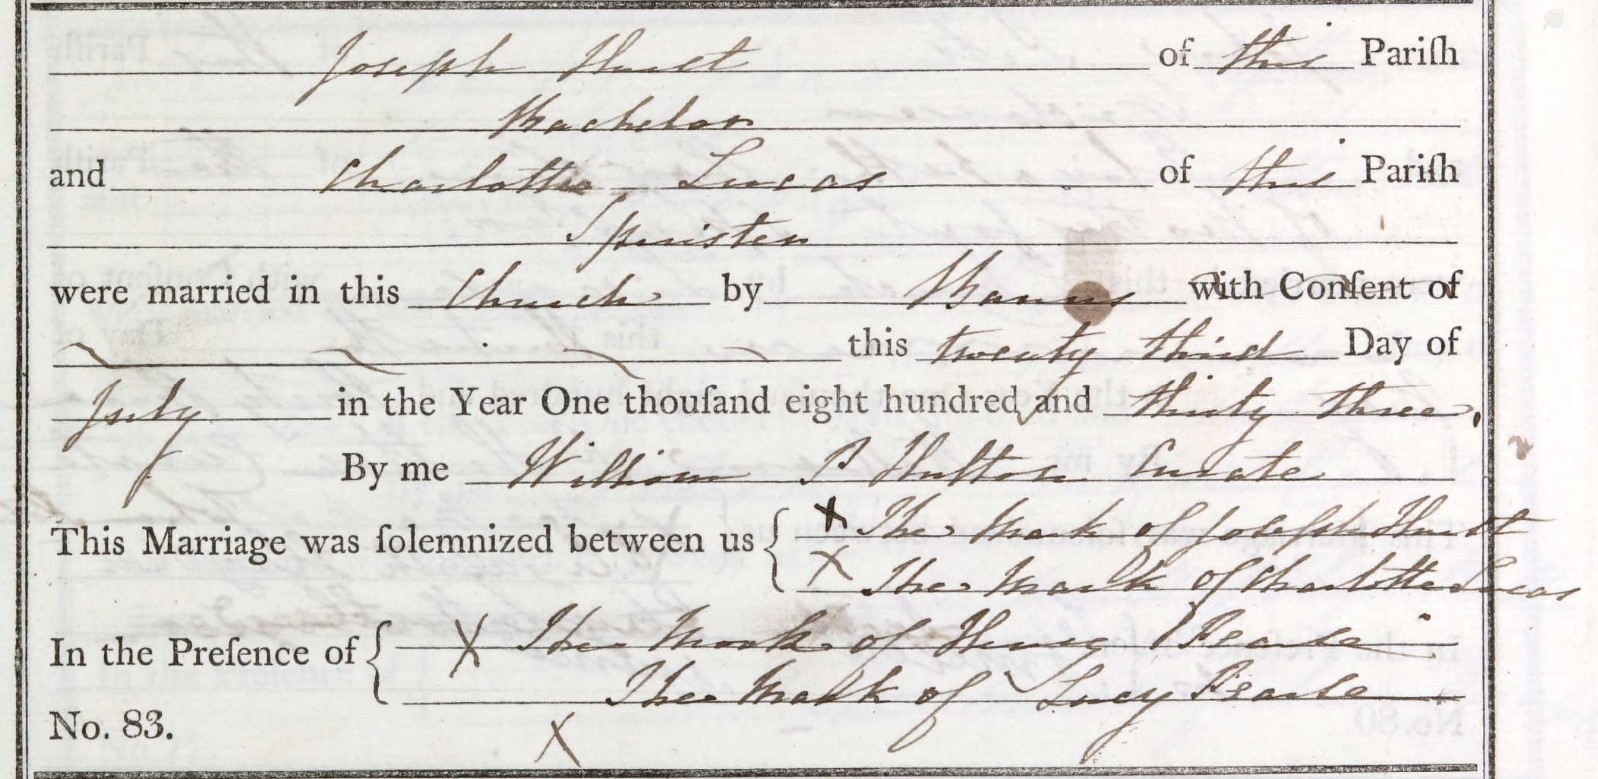 Joseph Hurst of this Pariſh
Bachelor
and Charlotte Lucas of this Pariſh
Spinster
were married in this Church by Banns with Conſent of
this twenty third Day of
July in the Year One thouſand eight hundred and thirty three.
By me William P Hutton Curate
This Marriage was ſolemnized between us { X The Mark of Joseph Hurst
X The Mark of Charlotte Lucas
In the Preſence of { X The Mark of Henry Pearse
The Mark of Lucy Pearse
No. 83. X